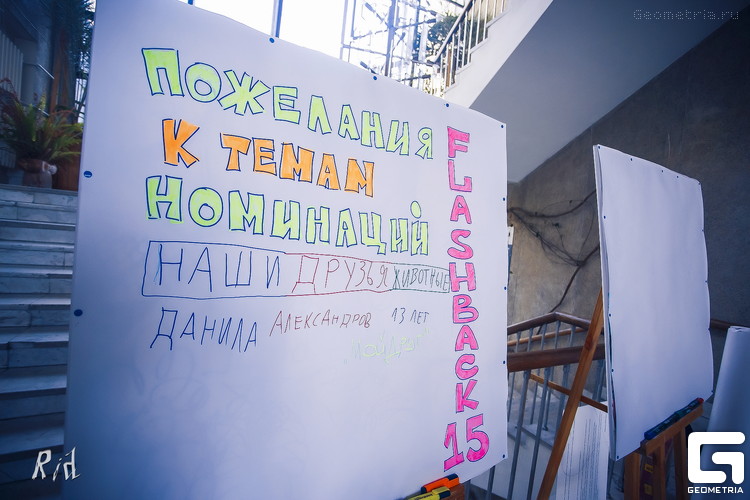 Geometria.ru
ПОЖЕЛАНИЯ
К ТЕМАМ
НОМИНАЦИЙ
НАШИ ДРУЗЬЯ ЖИВОТНЫЕ
ДАНИЛА АЛЕКСАНДРОВ 13 ЛЕТ
FLASHBACK 15
Rid
GEOMETRIA